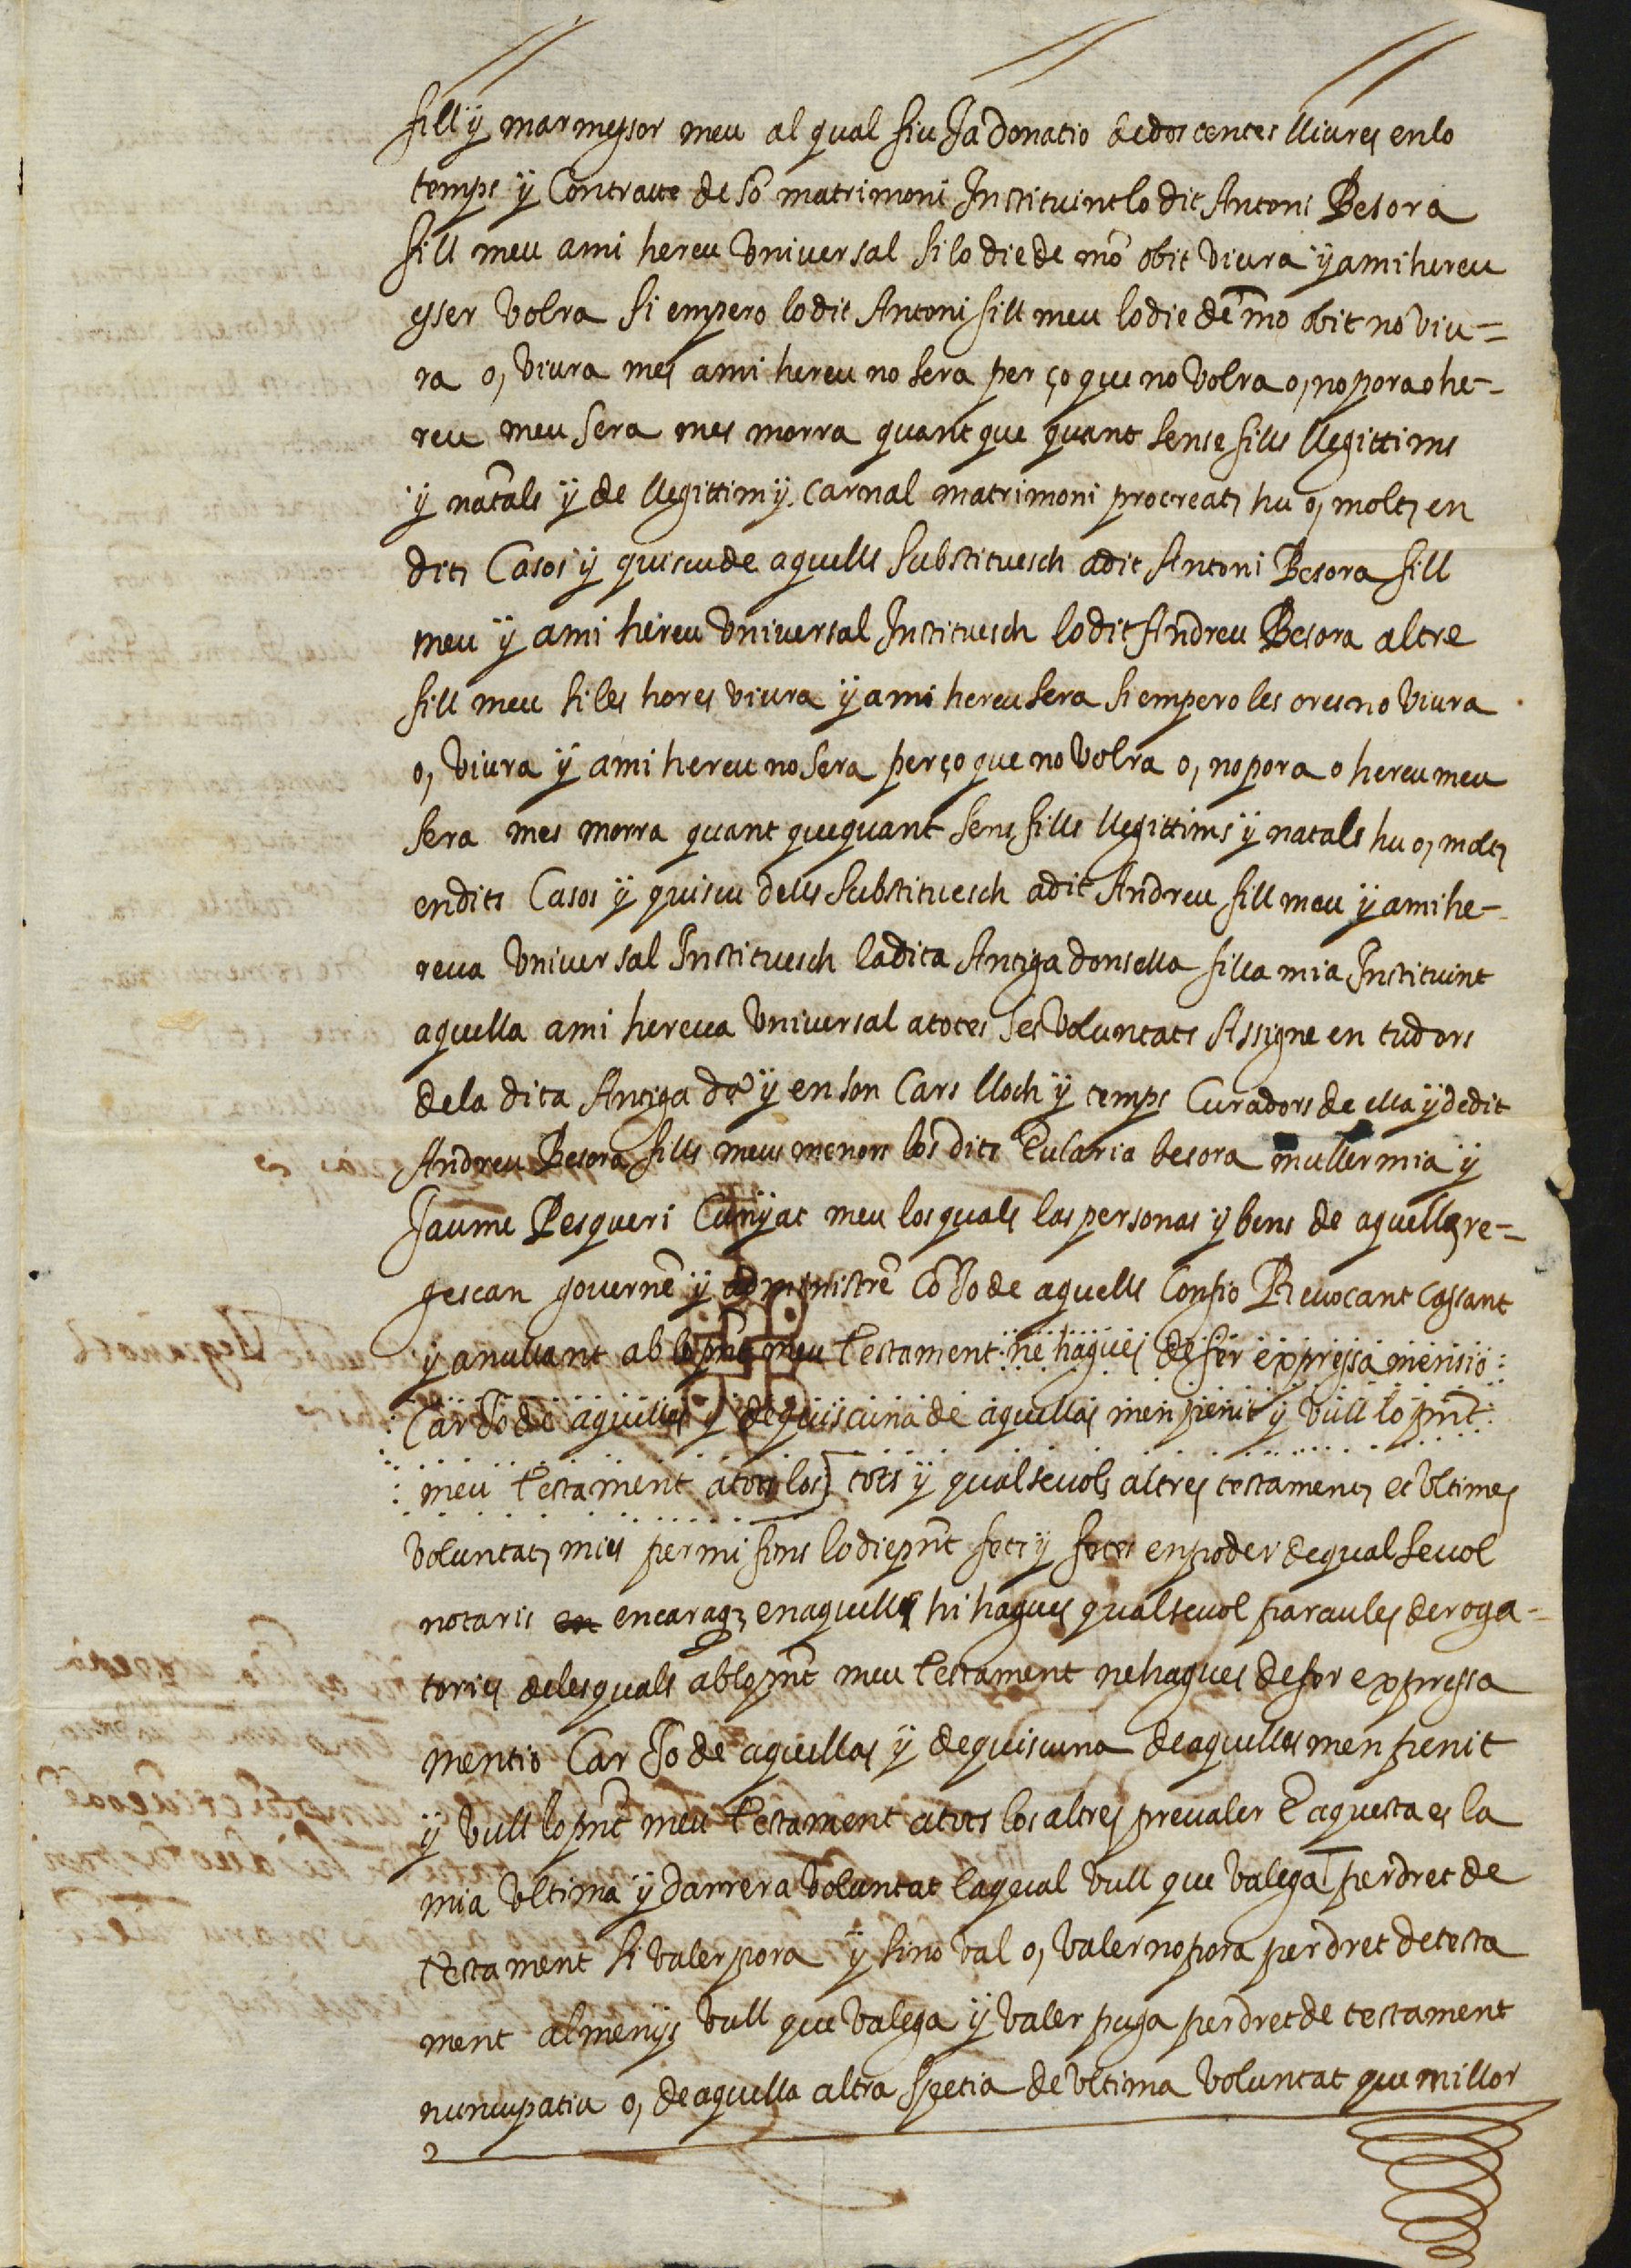 fill y marmessor meu al qual fiu Ja donatio de dos centes lliures en lo
temps y Contracte de sō matrimoni Instituint lo dit Antoni Besora
fill meu a mi hereu Vniuersal si lo die de mō obit viura y a mi hereu
esser Volra Si empero lo dit Antoni fill meu lo die de mō obit no Viu=
ra o, viura mes a mi hereu no sera per ço que no Volra o, no pora o he-
reu meu sera mes morra quant que quant sense fills llegittims
y nat̄als y de llegittim y carnal matrimoni procreats hu o, molts en
dits Casos y quiscu de aquells Substituesch a dit Antoni Besora fill
meu y a mi hereu Vniuersal Instituesch lo dit Andreu Besora altre
fill meu si les hores viura y a mi hereu sera Si empero les ores no Viura
o, Viura y a mi hereu no sera per ço que no Volra o, no pora o hereu meu
sera mes morra quant que quant sens fills llegittims y natals hu o, molts
en dits Casos y quiscu dells Substituesch a dit Andreu fill meu y a mi he-
reua Vniuersal Instituesch la dita Antiga donsella filla mia Instituint
aquella a mi hereua Vniuersal a totes ses Voluntats Assigne en tudors
de la dita Antiga dōa y en son Cars lloch y temps Curadors de ella y de dit
Andreu Besora fills meus menors los dits Eularia besora muller mia y
Jaume Pesqueri Cunyat meu los quals las personas y bens de aquells re=
gescan gouernē y administrē cō Jo de aquells Confio Reuocant Cassant
y anullant ab lo pnt̄ meu testament ne hagues de fer expressa mensio
Car Jo de aquellas y de quiscuna de aquellas men penit y vull lo pnt̄
meu testament a tots los tots y qualseuols altres testaments et Vltimes
Voluntats mies per mi fins lo die pnt̄ fets y fetes en poder de qualseuol
notaris en encaraq; en aquells hi hagues qualseuol paraules deroga=
tories de les quals ab lo pnt̄ meu testament ne hagues de fer expressa
mentio Car Jo de aquellas y de quiscuna de aquellas men penit
y Vull lo pnt̄ meu testament a tots los altres preualer E aquesta es la
mia Vltima y darrera Voluntat la qual Vull que Valega per dret de
testament Si Valer pora y Sino Val o, Valer no pora per dret de testa
ment al menys Vull que Valega y Valer puga per dret de testament
nuncupatiu o, de aquella altra spetia de Vltima Voluntat que millor